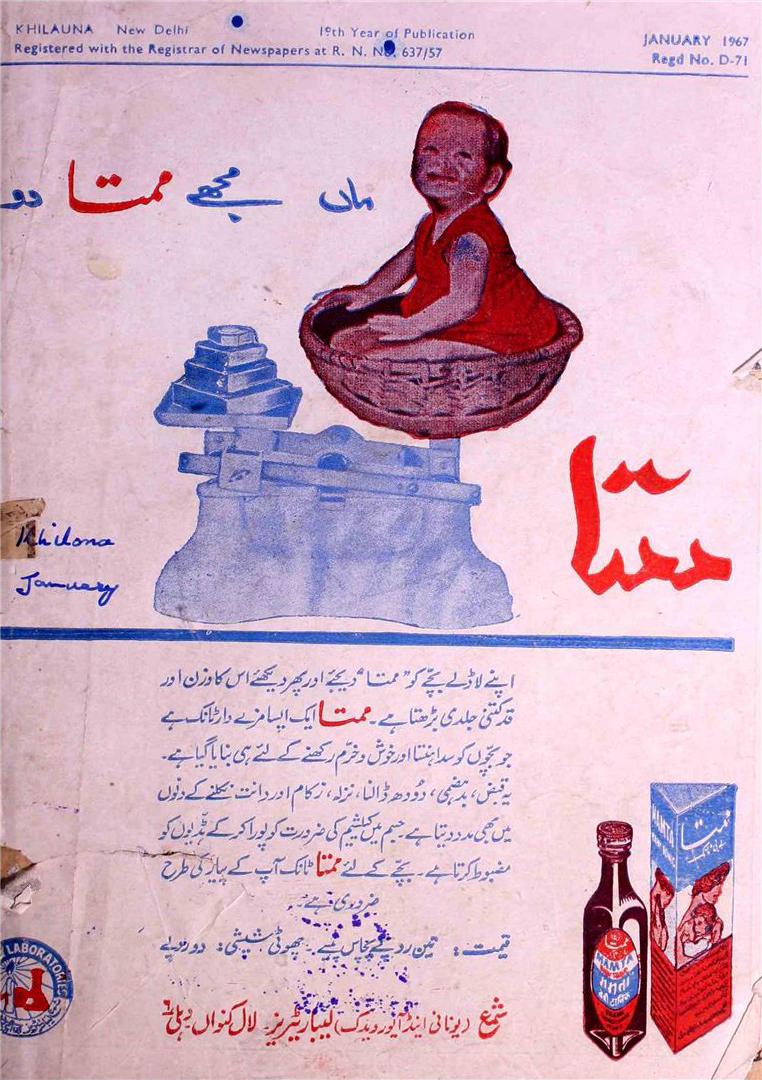 KHILAUNA New Delhi 19th Year of Publication JANUARY 1967
Registered with the Registrar of Newspapers at R. N. No. 637/57 Regd No. D-71
ماں مجھے ممتا دو
ممتا
Khilona
January
اپنے لاڈلے بچّے کو "ممتا" دیجئے اور پھر دیکھئے اس کا وزن اور
قد کتنی جلدی بڑھتا ہے۔ ممتا ایک ایسا مزے دار ٹانک ہے
جو بچّوں کو سدا ہنستا اور خوش و خرّم رکھنے کے لئے ہی بنایا گیا ہے۔
یہ قبض، بدہضمی، دُودھ ڈالنا، نزلہ، زکام اور دانت نکلنے کے دنوں
میں بھی مدد دیتا ہے جسم میں کیلشیم کی ضرورت کو پورا کر کے ہڈّیوں کو
مضبوط کرتا ہے۔ بچّے کے لئے ممتا ٹانک آپ کے پیار کی طرح
ضروری ہے۔
قیمت: تین روپے پچاس پیسے۔ چھوٹی شیشی: دو روپے
شمع (یونانی اینڈ آیورویدک) لیباریٹریز۔ لال کنواں دہلی ۶
LABORATORIES
MAMTA
ममता
MAMTA
ممتا